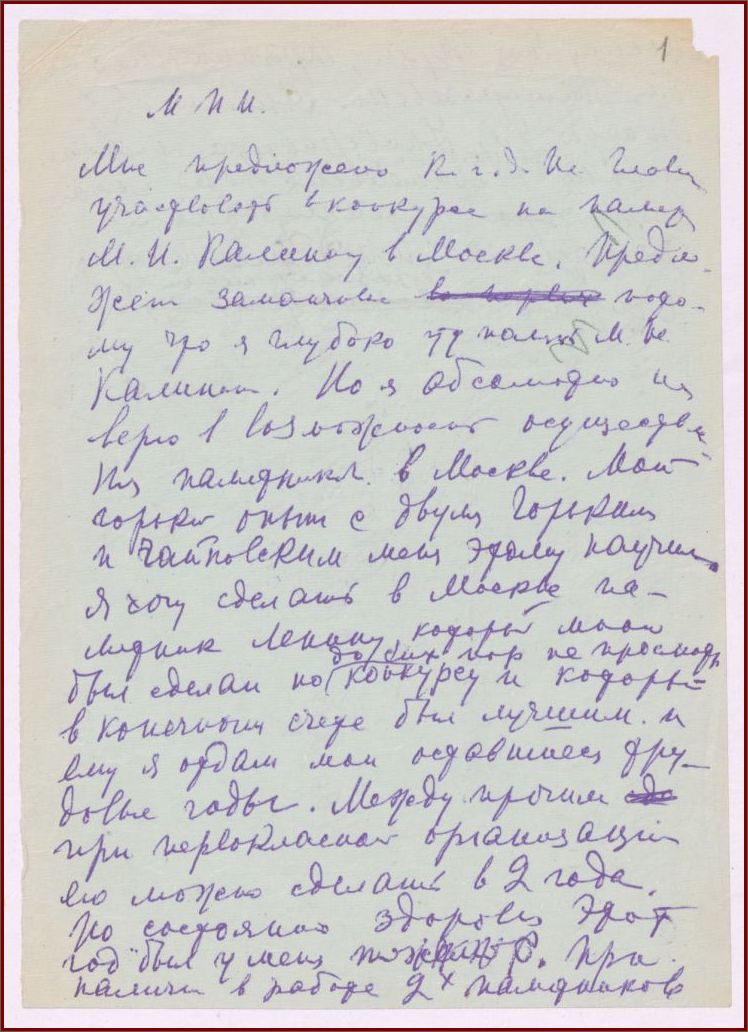 1
М И И.
Мне предложено К. г. д. И.
участвовать в конкурсе на памят
М. И. Калинину в Москве. Предло-
жен заманчиво во первых пото-
му что я глубоко М. И.
Калинина. Но я абсолютно не
верю в возможность осуществле
ния памятника в Москве. Мой
горький опыт с двумя Горькими
и Чайковским меня этому научил.
Я хочу сделать в Москве па-
мятник Ленину который мною
до сих пор не
был сделан по конкурсу и который
в конечном счете был лучшим. и
ему я отдам мои оставшиеся тру-
довые годы. Между прочим
при первоклассной организации
его можно сделать в 2 года.
По состоянию здоровья этот
год был у меня При
наличии в работе 2х памятников